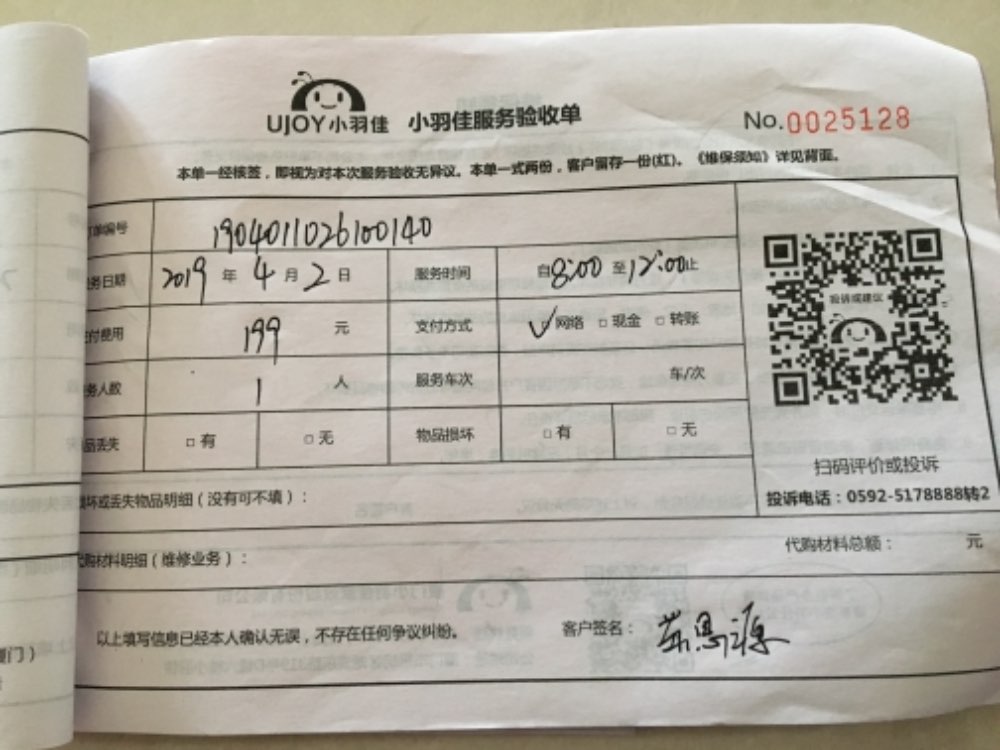 UJOY小羽佳 小羽佳服务验收单 No.0025128
本单一经核签，即视为对本次服务验收无异议。本单一式两份，客户留存一份(红)。《维保须知》详见背面。
单编号 1904011026100140
务日期 2019 年 4 月 2 日 服务时间 自8:00 至12:00止
投诉或建议
付费用 199 元 支付方式 ✓网络 □现金 □转账
务人数 1 人 服务车次 车/次
品丢失 □有 □无 物品损坏 □有 □无
扫码评价或投诉
坏或丢失物品明细（没有可不填）：
投诉电话：0592-5178888转2
代购材料明细（维修业务）： 代购材料总额： 元
以上填写信息已经本人确认无误，不存在任何争议纠纷。 客户签名：
门）